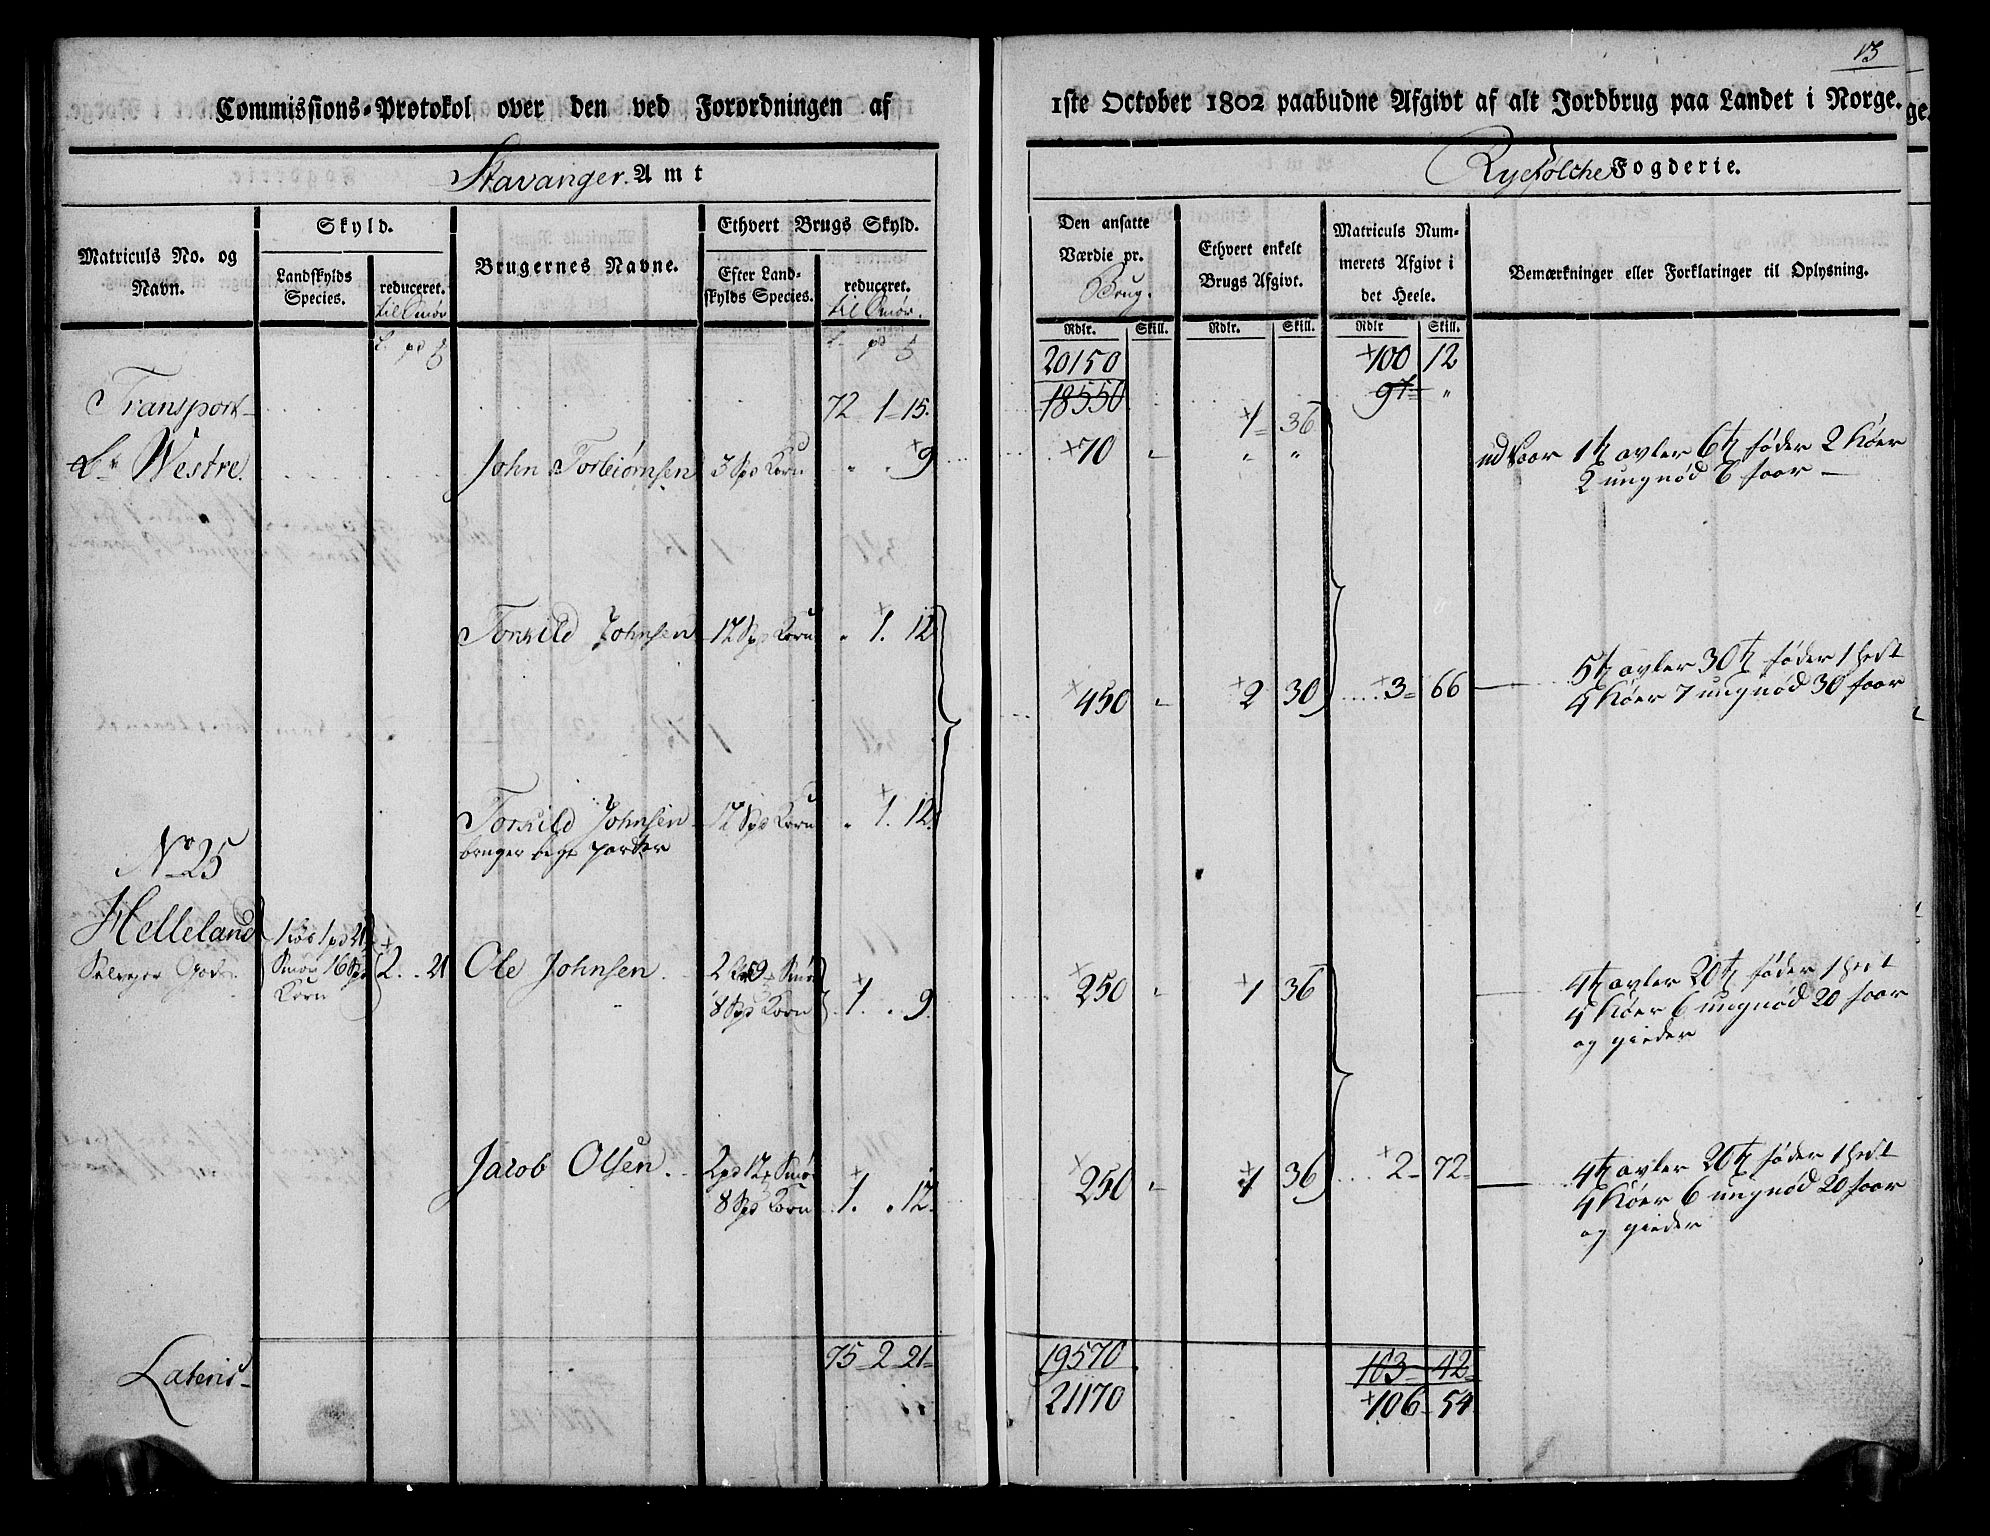 13
Commissions-Protokol over den ved Forordningen af
1ste October 1802 paabudne Afgivt af alt Jordbrug paa Landet i Norge.
Stavanger Amt
Ryefølche Fogderie.
Matriculs No. og Navn.
Skyld.
Landskylds Species.
reduceret.
til Smør
Brugernes Navne.
Ethvert Brugs Skyld.
Efter Landskylds Species.
reduceret.
til Smør.
Den ansatte Værdie pr.
Brug.
Ethvert enkelt Brugs Afgivt.
Matriculs Nummerets Afgivt i det Heele.
Bemærkninger eller Forklaringer til Oplysning.
Rdlr. Skill. Rdlr. Skill. Rdlr Skill.
20150 100 12
Transport 72 1 15. 18550 97 "
1 36
Westre John Torbiørnsen 3 Spd Korn " " 9 70 " " "
ud Saar 1 t avler 6 t føder 2 Kiøer
2 ungnød 6 faar
Torkild Johnsen 12 Spd Korn " 1. 12
450 2 30 3 66
5 t avler 30 t føder 1 Hest
4 Kiøer 7 ungnød 30 faar
Torkild Johnsen 12 Spd Korn " 1. 12.
bruger begge parter
No 25
Helleland
Løs 1 pd 21
Smør 16 Spd
Korn
2. . 21 Ole Johnsen
9 Smør
8 Spd Korn 1. . 9. 250 1 36
4 t avler 20 t føder 1 Hest
4 Kiøer 6 ungnød 20 faar
og gieder
Jacob Olsen 2 pd 12 Smør
8 Spd Korn 1. . 12. 250 1 36 2 72
4 t avler 20 t føder 1 Hest
4 Kiøer 6 ungnød 20 faar
og gieder
Lateris 75 2 21 19570 103 42
21170 106 54